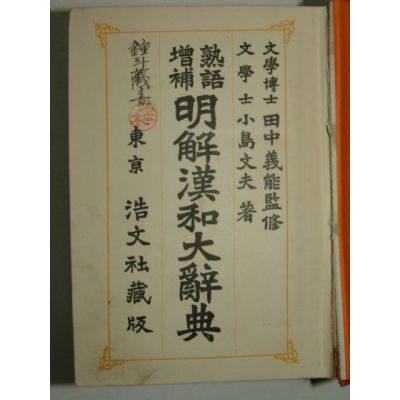 文學博士 田中義能 監修
文學士 小島文夫 著
熟語
增補
明解漢和大辭典
東京 浩文社藏版